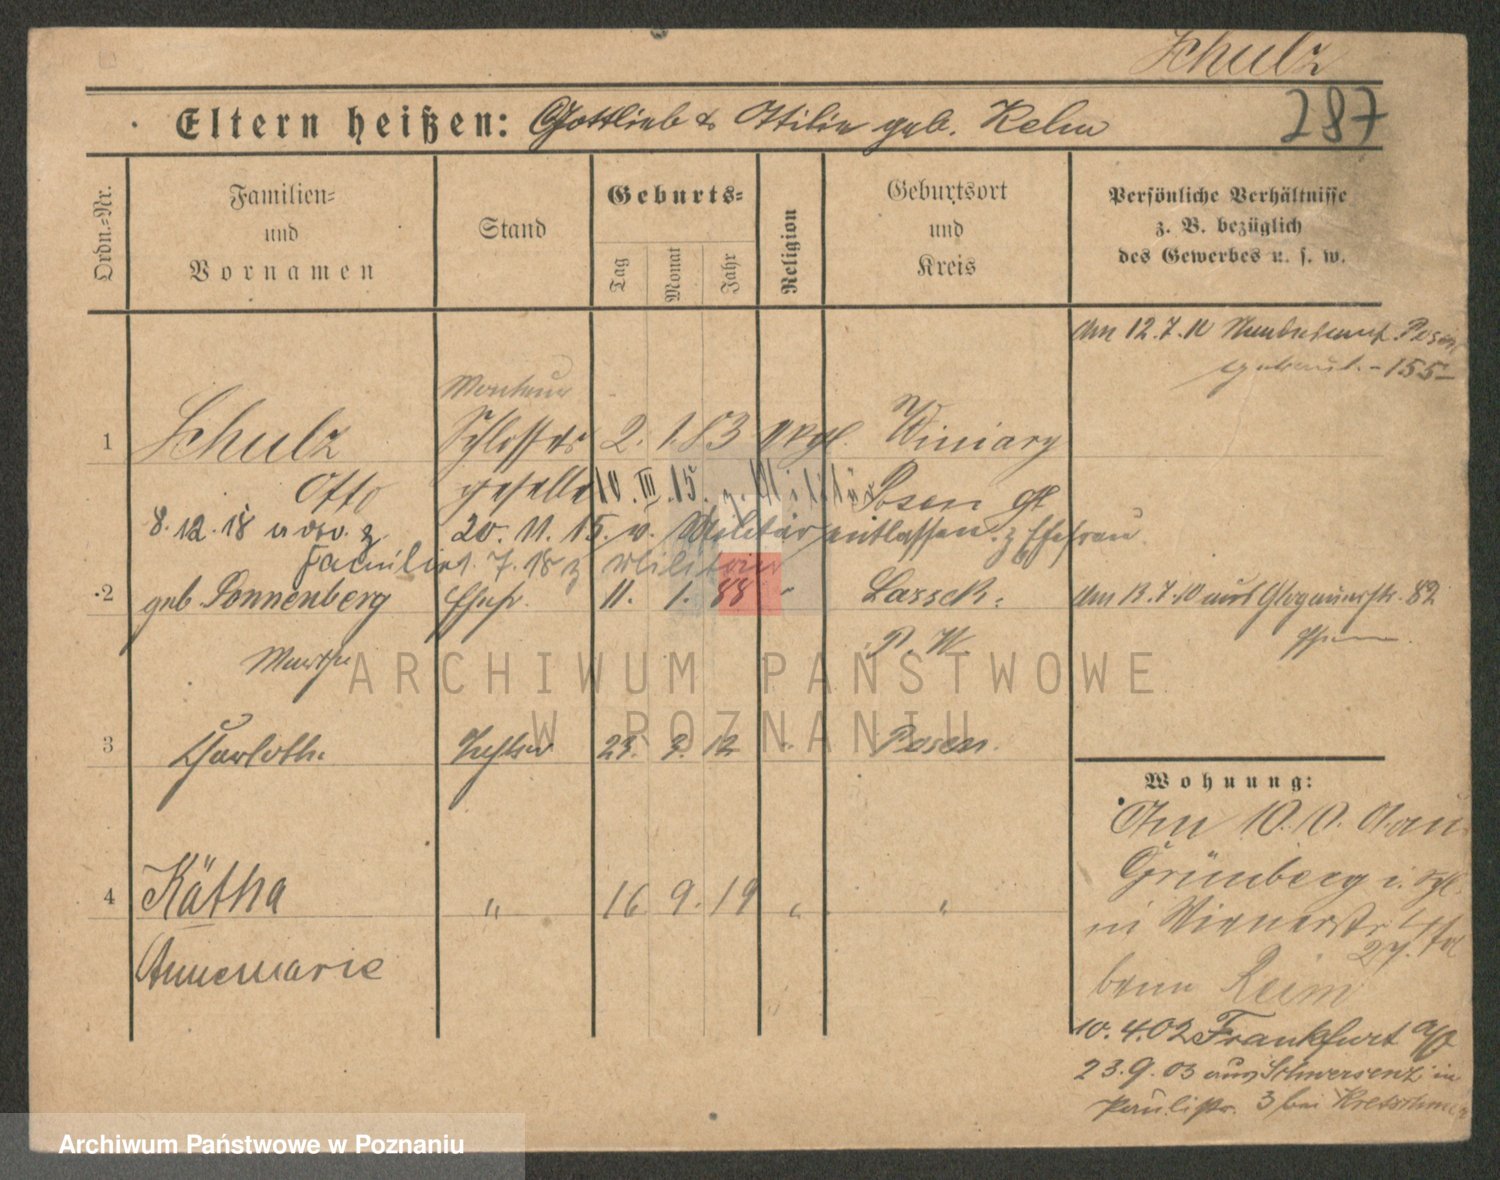 Schulz
287
Eltern heißen: Gottlieb & Ottilie geb. Kelm
Ordn.=Nr.
Familien=
und
Vornamen
Stand
Geburts=
Tag
Monat
Jahr
Religion
Geburtsort
und
Kreis
Persönliche Verhältnisse
z. B. bezüglich
des Gewerbes u. s. w.
Am 12.7.10 Posen
getraut. - 155
Monteur
1 Schulz Schlosser 2. 1. 83 evgl. Winiary
Otto geselle 10. III. 15. z. Militär Posen
8.12.18 z 20. 11. 15. v. Militär entlassen. z Ehefrau.
Familie 1. 7. 18 z Militär
2 geb Sonnenberg Ehefr. 11. 1. 88 " Lassek. Am 13.7.10 aus Glogauerstr. 82
Marthe P. W.
3 Charlotte Tochter 23. 3. 12 " Posen.
Wohnung:
Am 10.10. 01 aus
Grünberg i. Schl.
in Wienerstr
27.
beim Reim
4 Kätha " 16 9. 19 " "
Annemarie
10. 4. 02 Frankfurt a/O
23. 9. 03 aus Schwersenz in
Paulistr. 3 bei Kretschmer
ARCHIWUM PAŃSTWOWE
W POZNANIU
Archiwum Państwowe w Poznaniu